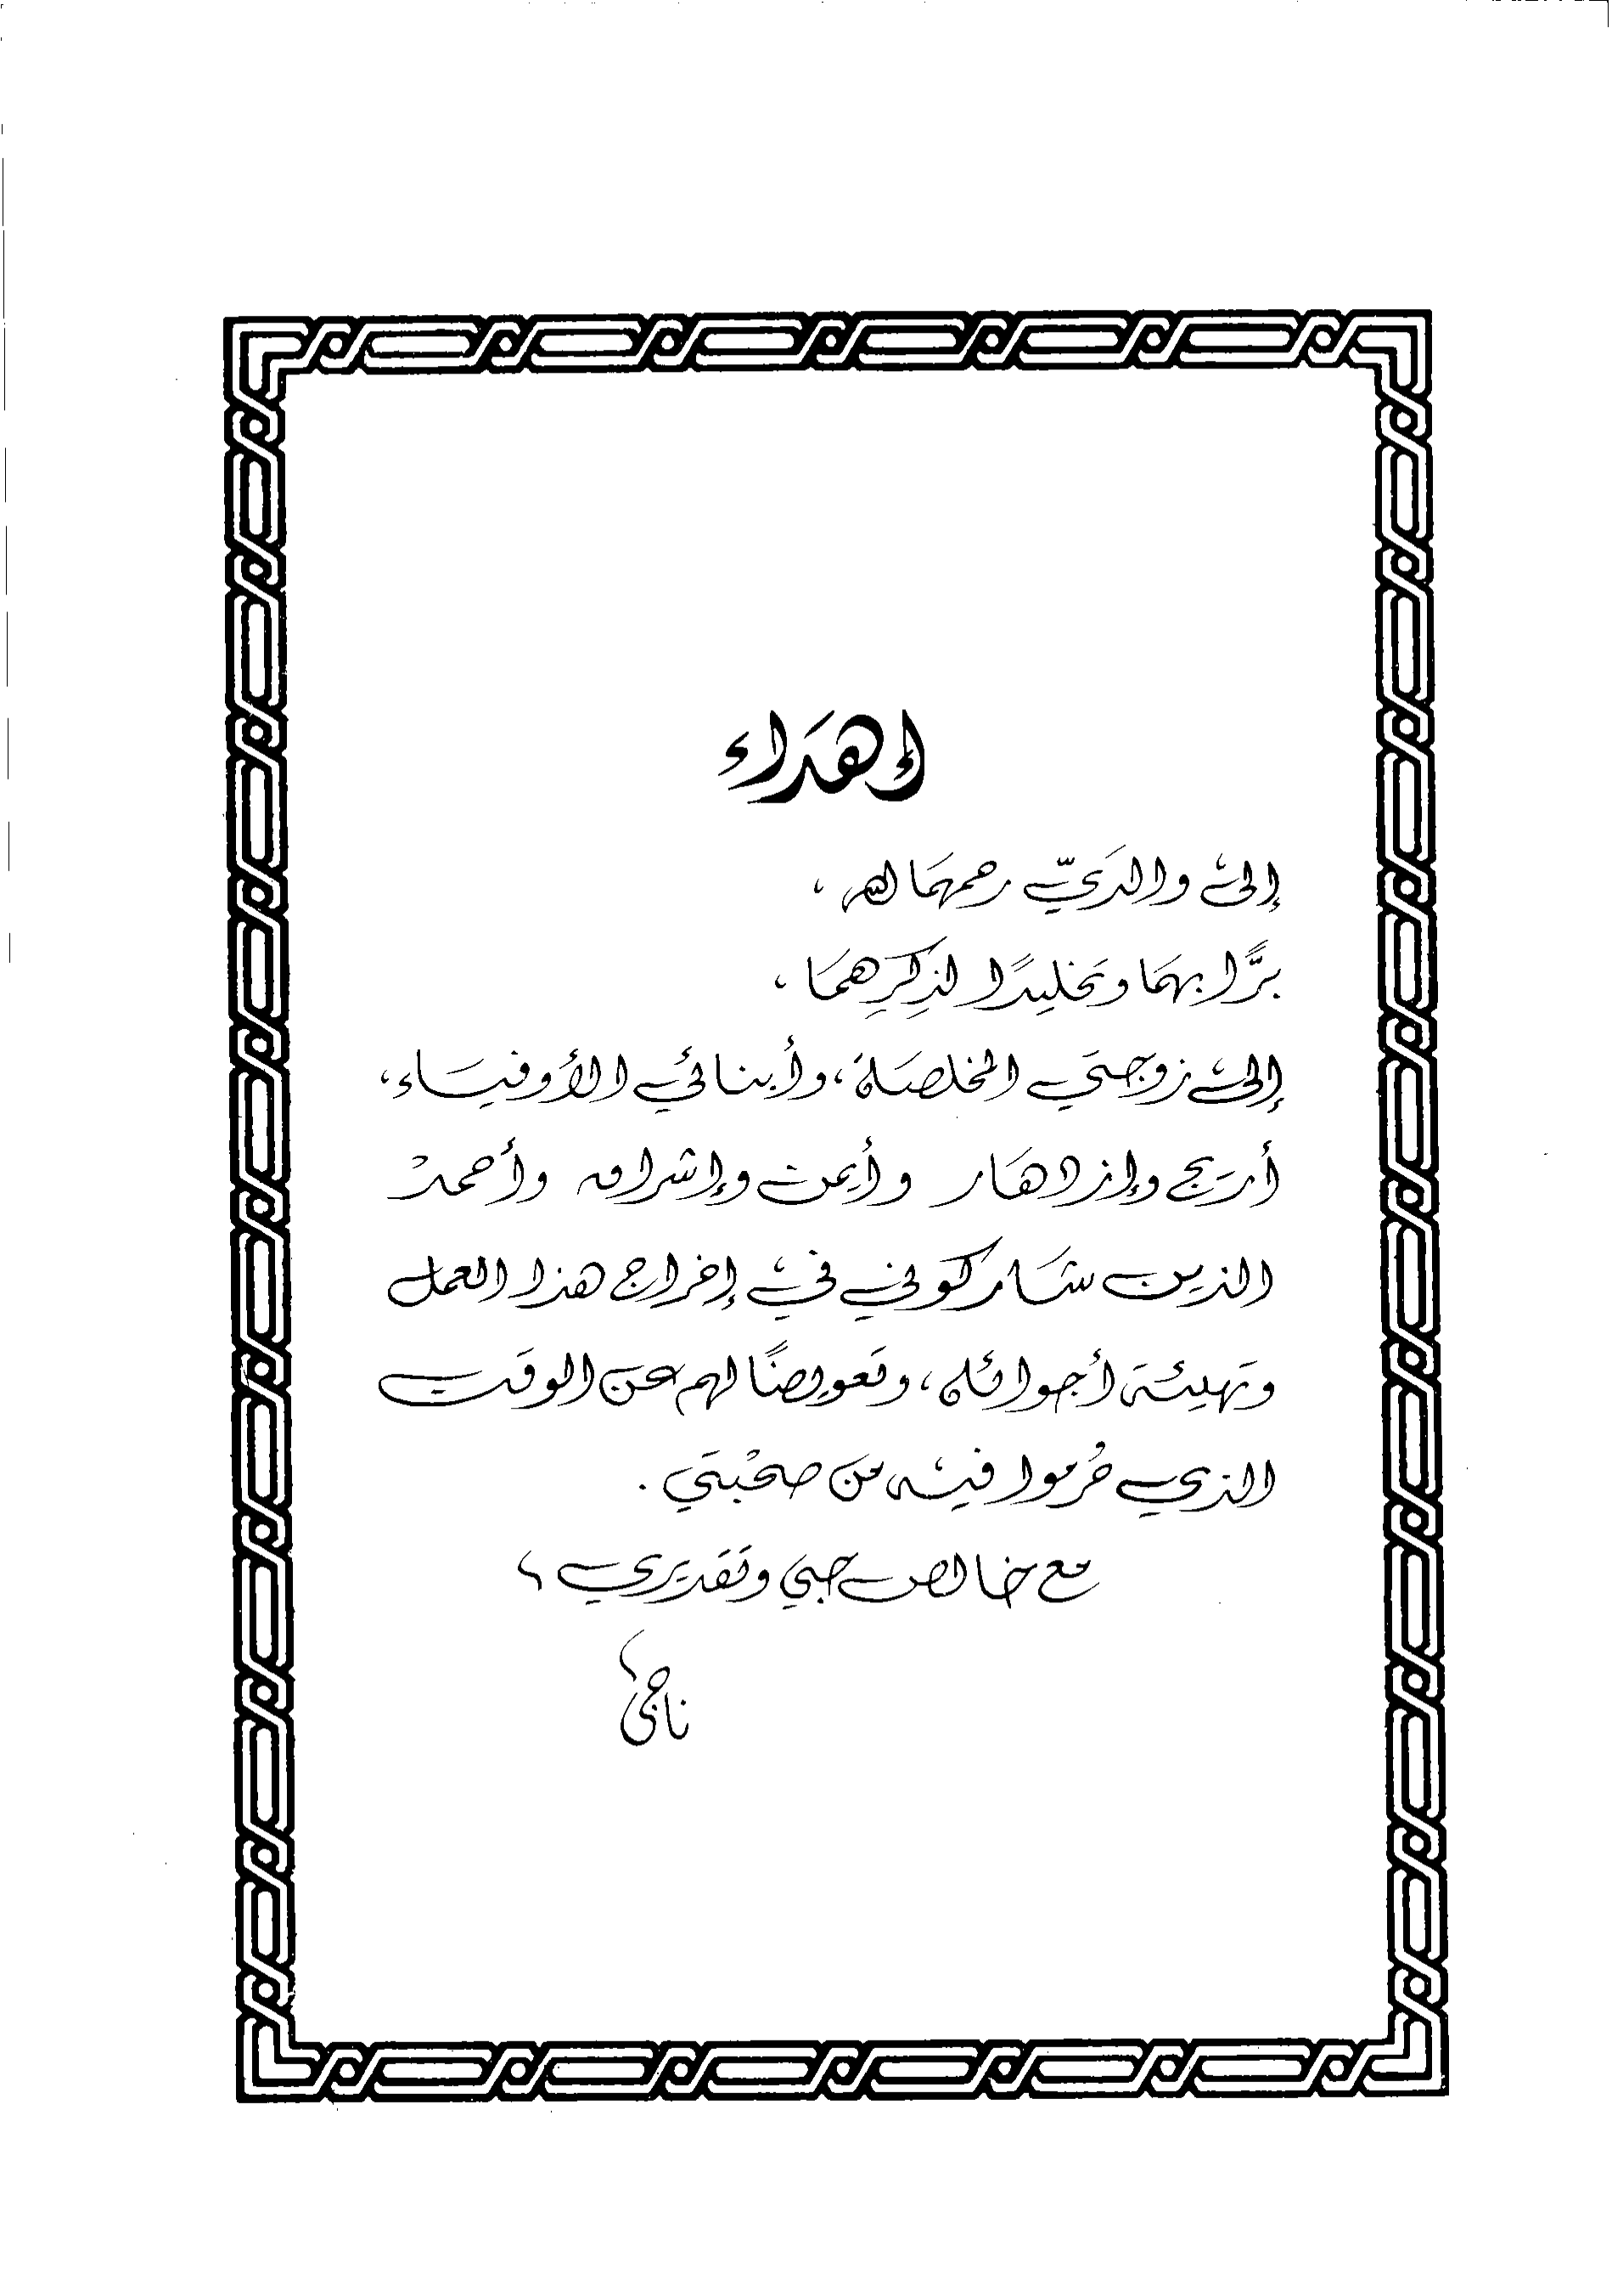 إهداء
إلى والديّ رحمهما الله،
برًّا بهما وتخليدًا لذكرهما،
إلى زوجتي المخلصة، وأبنائي الأوفياء،
أريج وإزدهار وأيمن وإشراق وأحمد
الذين شاركوني في إخراج هذا العمل
وتهيئة أجوائه، وتعويضًا لهم عن الوقت
الذي حُرموا فيه من صحْبتي.
مع خالص حبي وتقديري،
ناجي